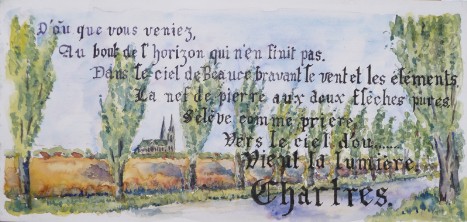 D'où que vous veniez,
Au bout de l'horizon qui n'en finit pas.
Dans le ciel de Beauce bravant le vent et les éléments
La nef de pierre aux deux flèches pures
S'élève comme prière
Vers le ciel d'où......
Vient la lumière.
Chartres.